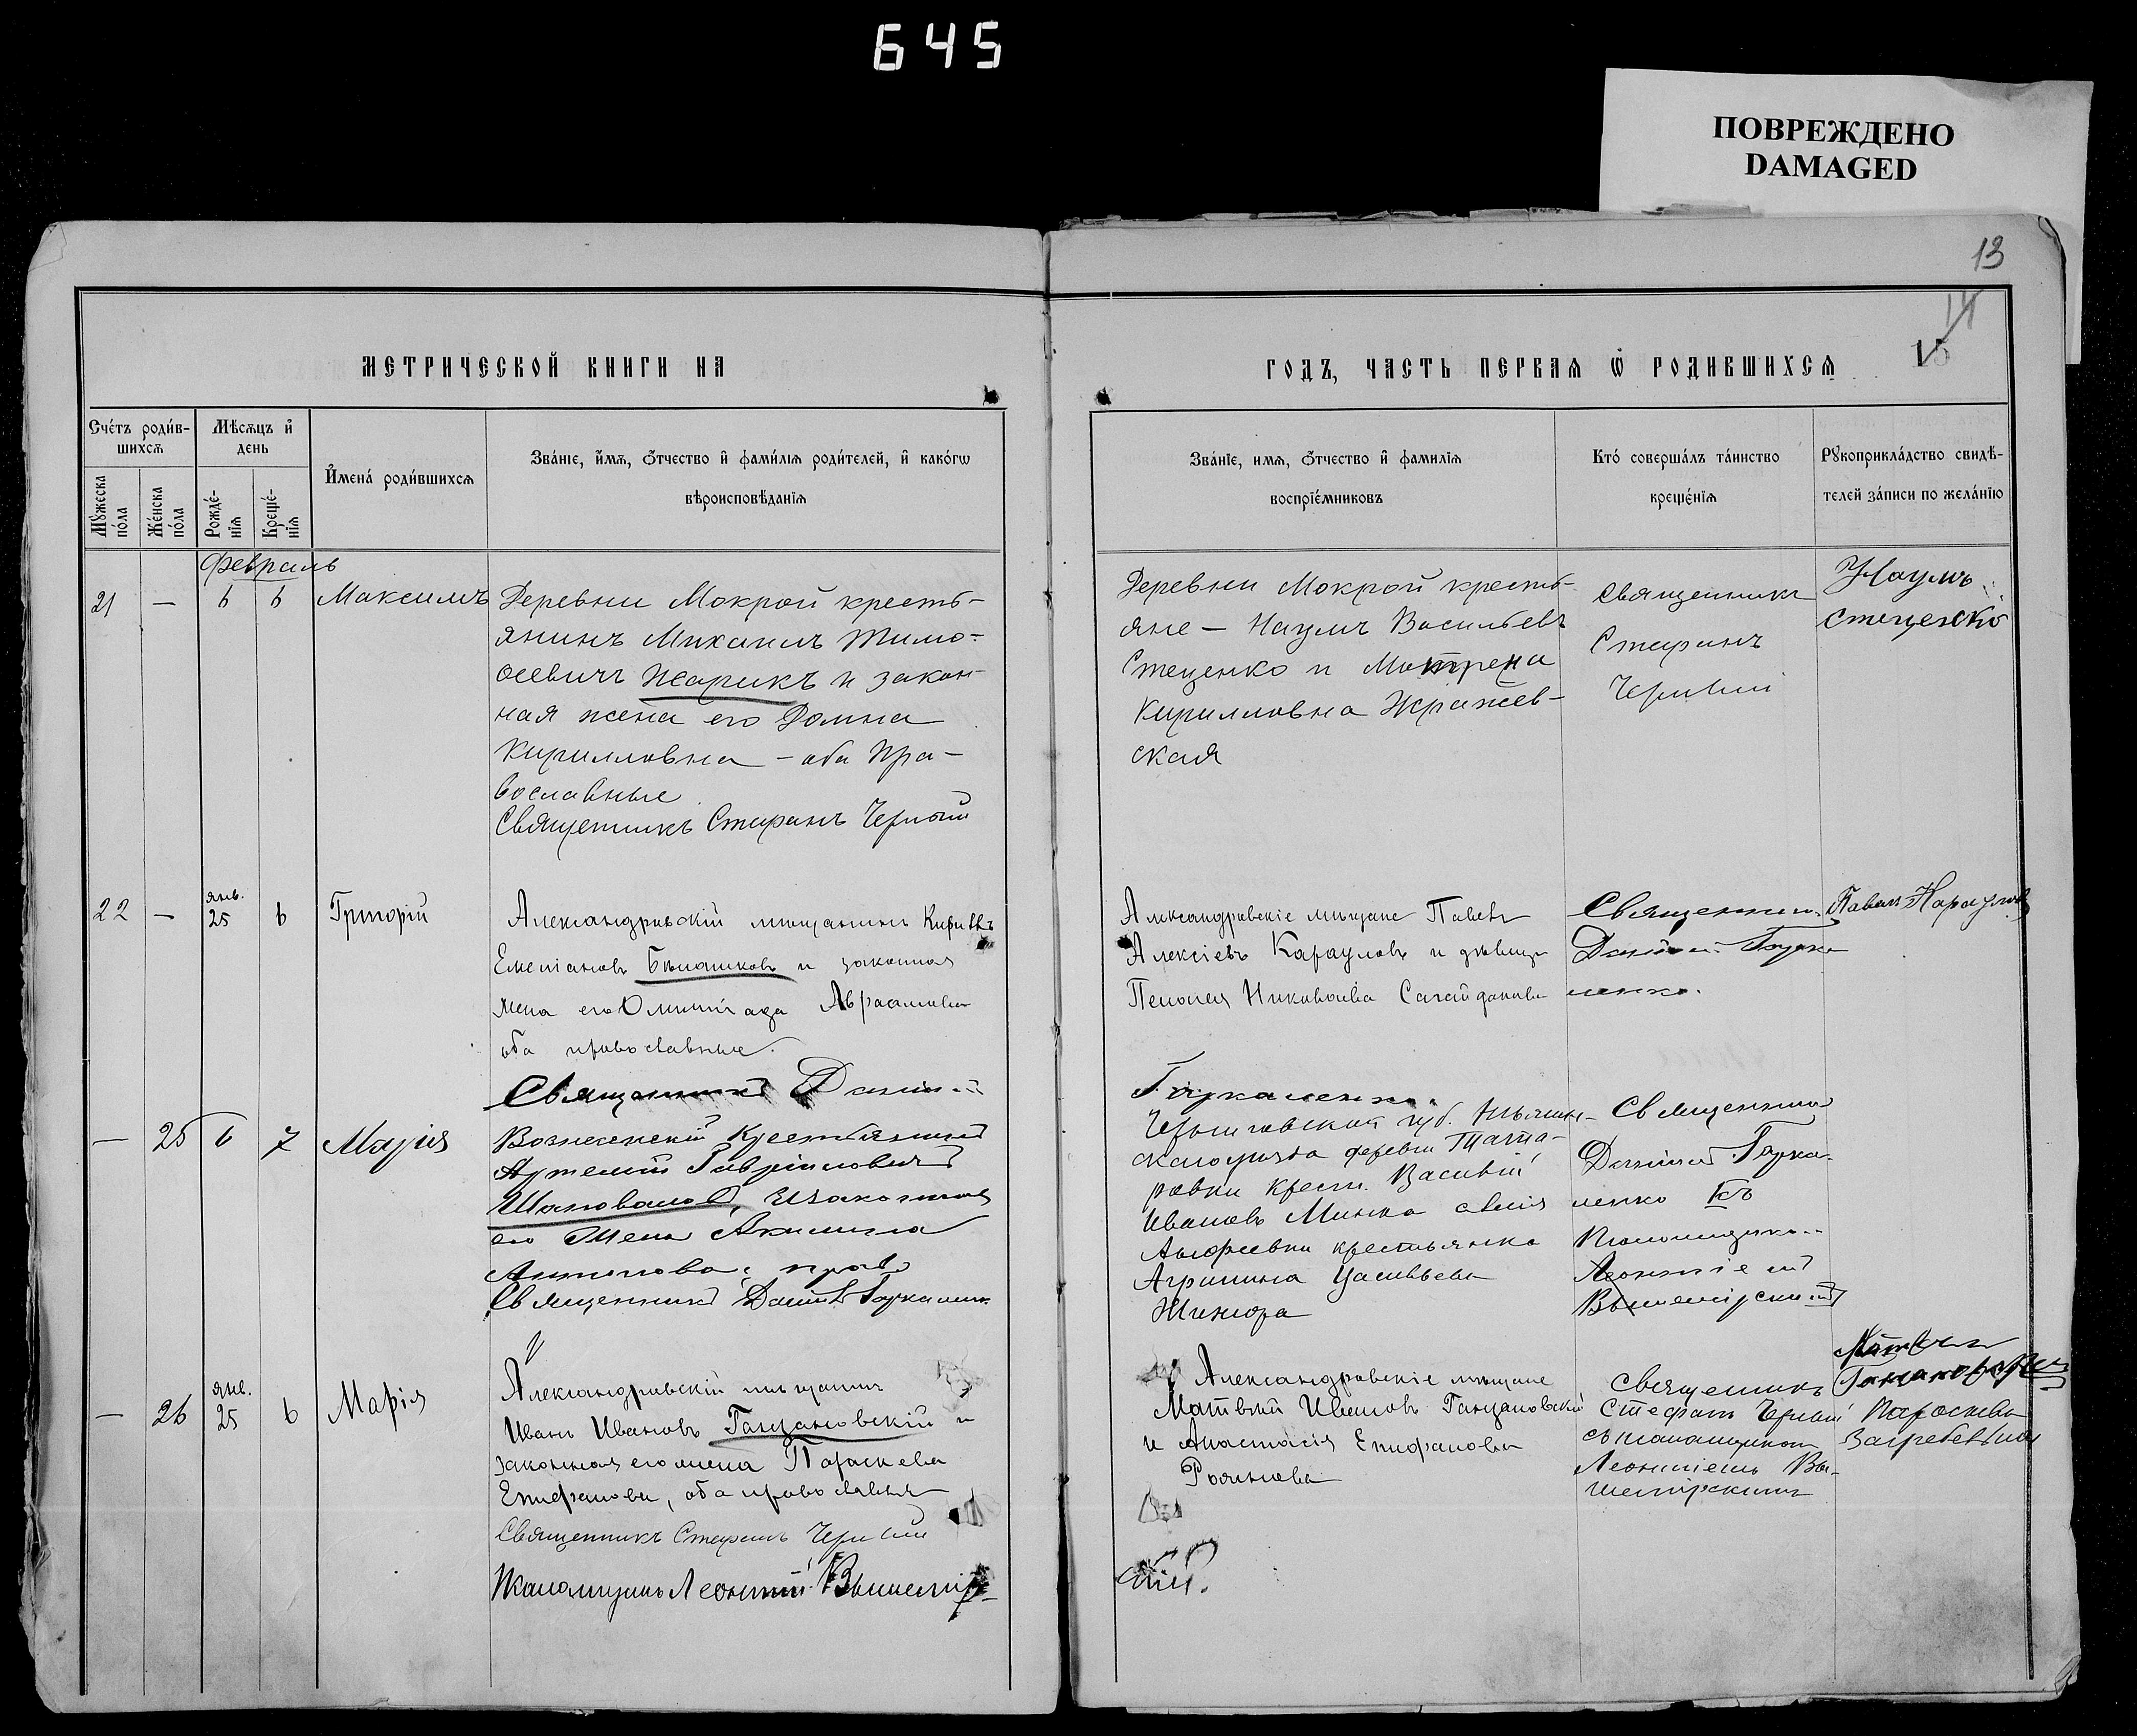 645
ПОВРЕЖДЕНО
DAMAGED
13
14
15
МЕТРИЧЕСКОЙ КНИГИ НА
ГОДЪ, ЧАСТЬ ПЕРВАѦ Ѿ РОДИВШИХСѦ
Счéтъ роди́в-
шихсѧ
Мꙋ́жеска
по́ла
Жéнска
по́ла
Мѣ́сѧцъ и҆
день
Рождé-
нїѧ
Крещé-
нїѧ
И҆мена́ роди́вшихсѧ
Зва́нїе, и҆́мѧ, ѻ҆́тчество и҆ фами́лїѧ роди́телей, и҆ како́гѡ
вѣроисповѣ́данїѧ
Зва́нїе, имѧ, ѻ҆́тчество и҆ фамилїѧ
воспрїе́мниковъ
Кто́ соверша́лъ та́инство
крещéнїѧ
Рꙋкоприкла́дство свидѣ́-
телей за́писи по жела́нїю
Февраль
21 — 6 6 Максимъ
Деревни Мокрой кресть-
янинъ Михаилъ Тимо-
ѳеевичъ Жарикъ и закон-
ная жена его Домна
Кирилловна – оба пра-
вославные
Священникъ Стефанъ Черный
Деревни Мокрой кресть-
яне – Наумъ Васильевъ
Стеценко и Матрена
Кирилловна Жражев-
ская
Священникъ
Стефанъ
Черный
Наумъ
Стеценко
22 — янв. 25 6 Григорій
Александровскій мѣщанинъ Кириллъ
Емельяновъ Бѣлашковъ и законная
жена его Олимпіада Авраамова
оба православные.
Священникъ Даніилъ
Александровскіе мѣщане Павелъ
Алексѣевъ Карауловъ и дѣвица
Пелагея Николаева Сагайдакова
Священник
Даніилъ Гирка-
ленко.
Павел Караулов
Гиркаленко.
— 25 6 7 Марія
Вознесенскій Крестьянинъ
Артемій Гавріиловичъ
Шаповаловъ, и законная
его жена Акилина
Антонова, прав.
Священникъ Даніилъ
Черниговской губ. Нѣжин-
скаго уѣзда деревни Тата-
ровки Крест. Василій
Ивановъ Минка
крестьянка
Агрипина Васильева
Священникъ
Даніилъ Гирка-
ленко
— 26 янв. 25 6 Марія
Александровскій мѣщанинъ
Иванъ Ивановъ Ганцановскій и
законная его жена Параскева
Епифанова, оба православные
Священникъ Стефанъ Черный
Леонтій Вышемір-
Александровскіе мѣщане
Матвѣй Ивановъ Ганцановскій
и Анастасія Епифанова
Священникъ
Стефанъ Черный
Леонтіемъ Вы-
шемірскимъ
скій.